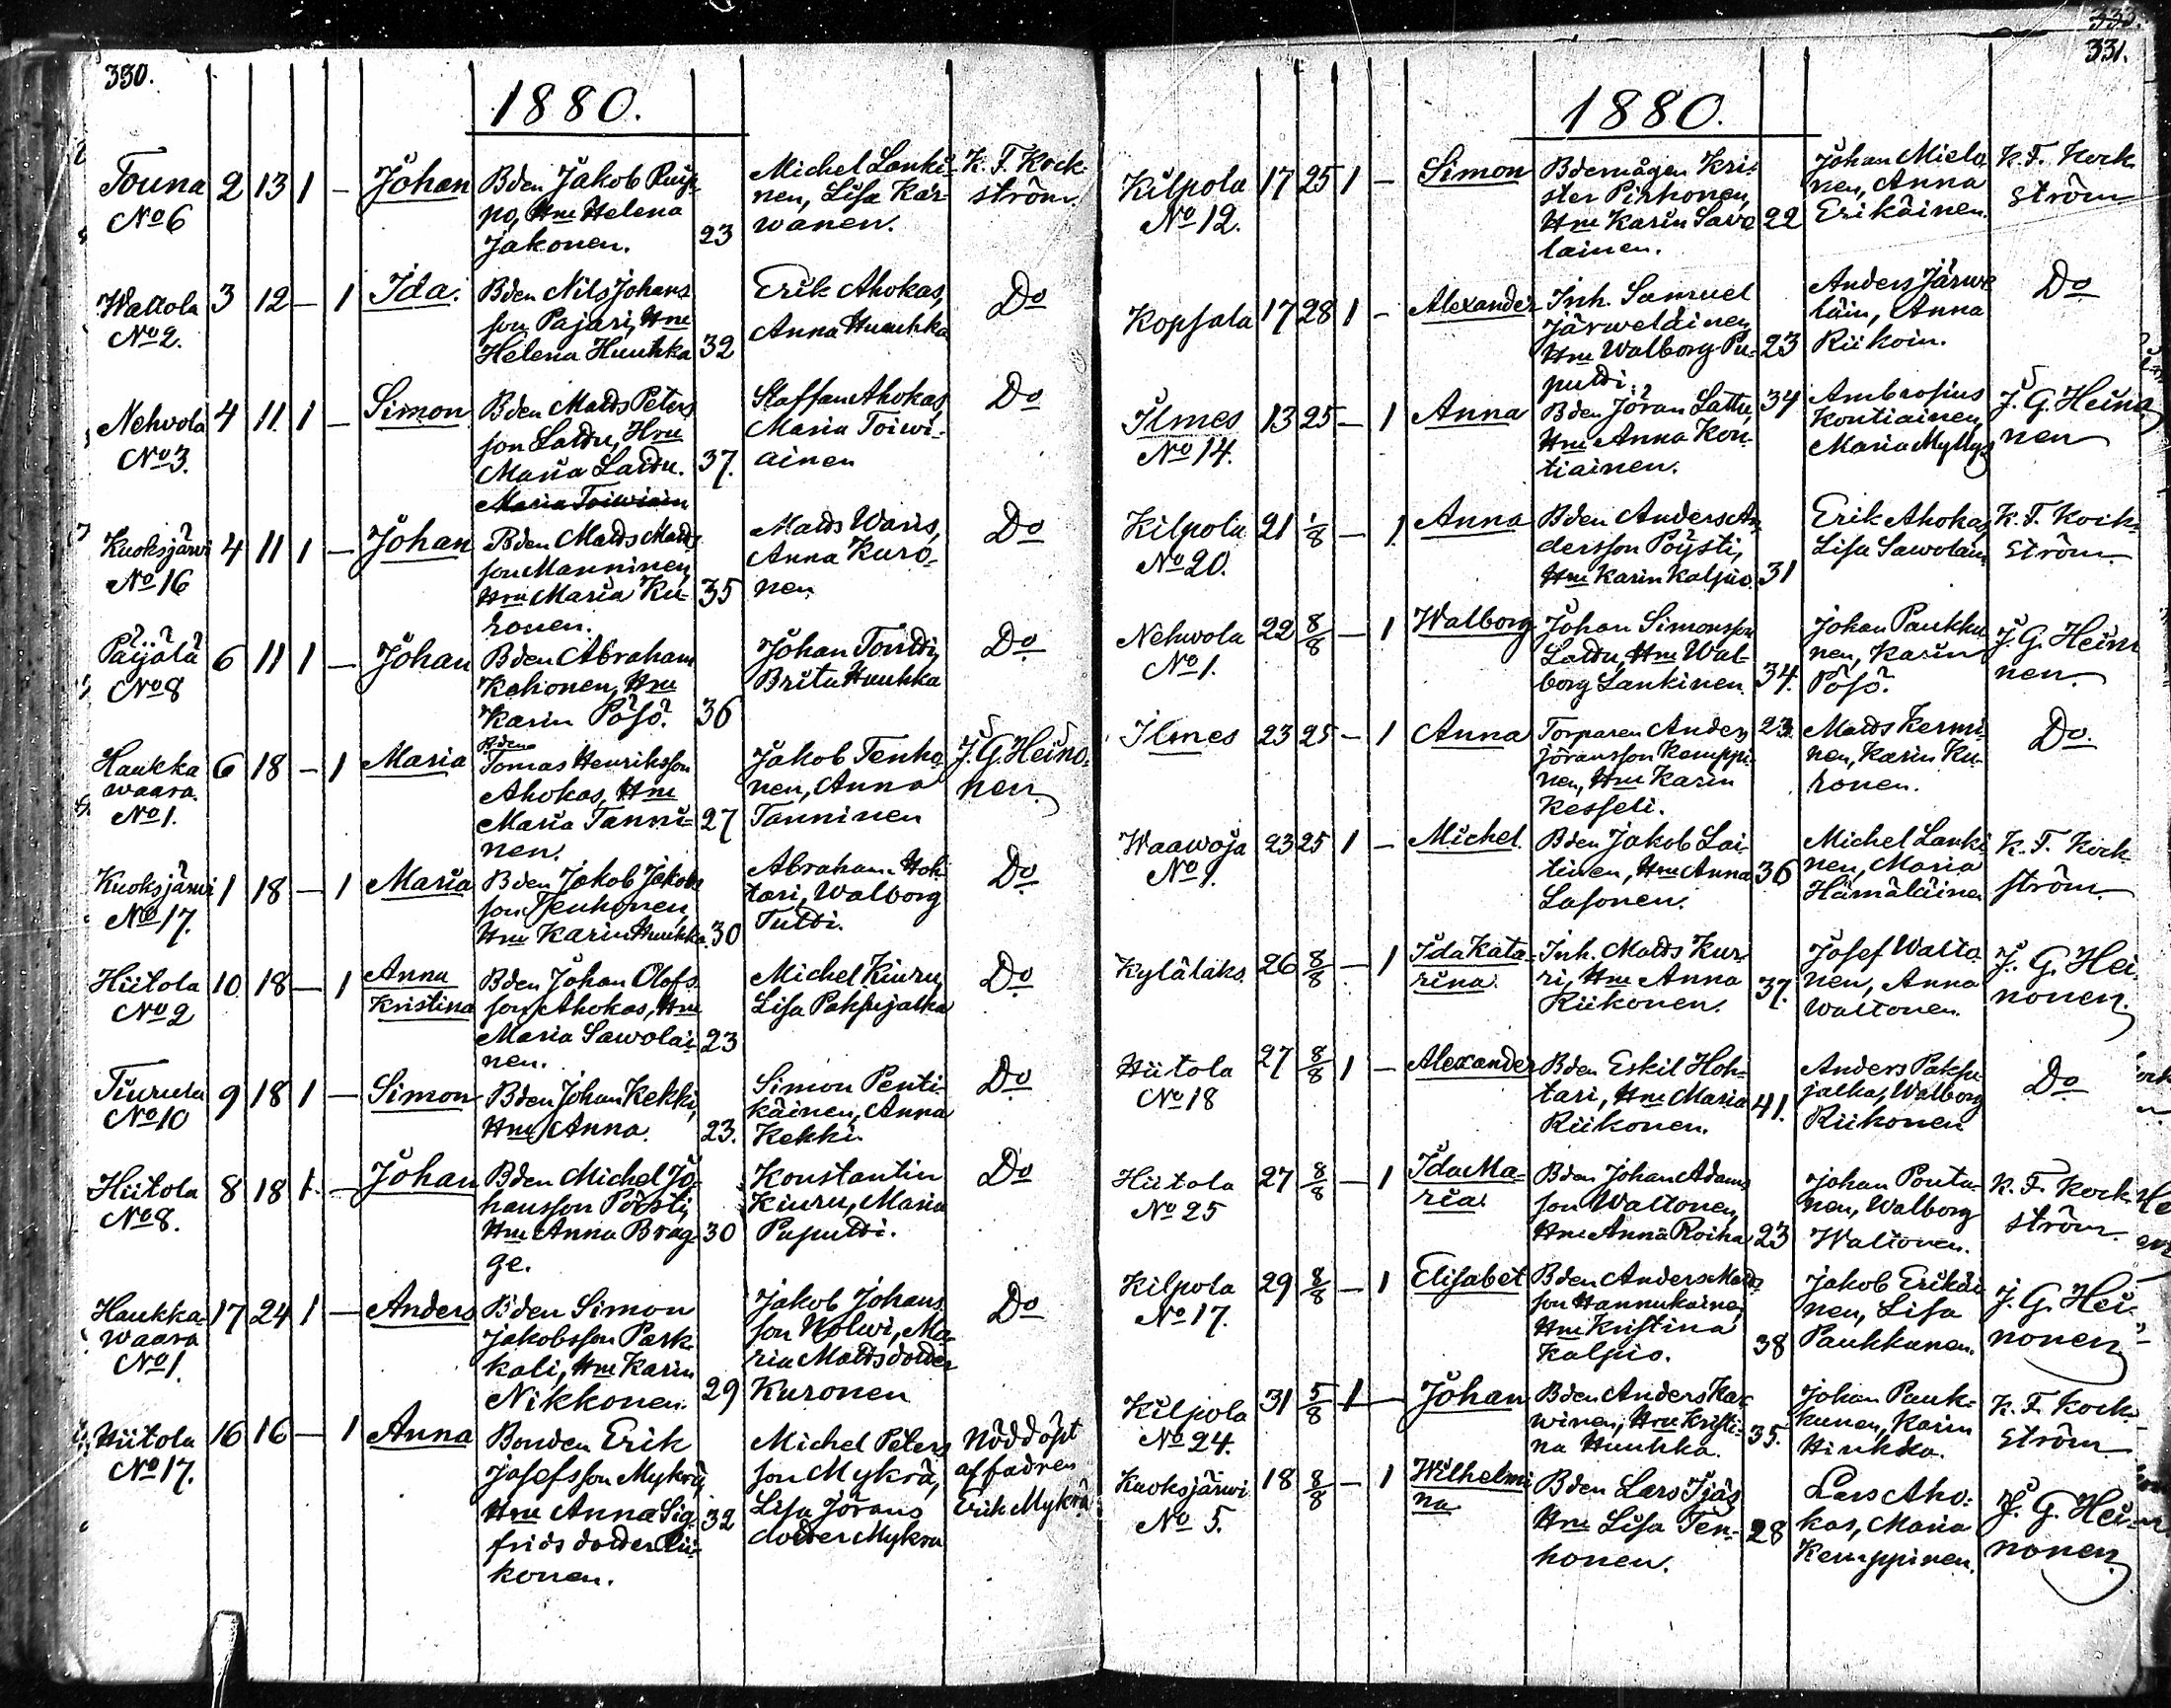 330.
1880.
Touna 2 13 1 – Johan Bden Jakob Ruip-
No 6
po, Hru Helena
Jakonen. 23
Michel Lanki-
nen, Lisa Kar-
wanen.
K. F. Kock-
ström
Waltola 3 12 – 1 Ida. Bden Nils Johans
No 2.
son Pajari, Hru
Helena Huuhka 32
Erik Ahokas,
Anna Huuhka
Do
Nehvola 4 11 1 – Simon Bden Matts Peters
No 3.
son Lattu, Hru
Maria Laitu. 37.
Maria Toiwiain
Staffan Ahokas,
Maria Toiwi-
ainen
Do
Kuoksjärwi 4 11 1 – Johan Bden Matts Matts
No 16
son Manninen,
Hru Maria Ku- 35
ronen.
Matts Waris,
Anna Kuro-
nen
Do
Päijälä 6 11 1 – Johan Bden Abraham
No 8
Kahonen, Hru
Karin Pösö. 36
Johan Tontti,
Brita Huuhka
Do
Haukka 6 18 – 1 Maria Bden
waara.
No 1.
Tomas Henriksson
Ahokas, Hru
Maria Tanni- 27
nen.
Jakob Tenho-
nen, Anna
Tanninen
J. G. Heino-
nen
Kuoksjärwi 1 18 – 1 Maria Bden Jakob Jakobs
No 17.
son Tenhonen,
Hru Karin Huuhka. 30
Abraham Hoh-
tari, Walborg
Tutti.
Do
Hiitola 10 18 – 1 Anna Kristina Bden Johan Olofs-
No 2
son Ahokas, Hru
Maria Sawolai- 23
nen.
Michel Kiuru,
Lisa Paksujalka
Do
Tiurula 9 18 1 – Simon Bden Johan Kekki,
No 10
Hru Anna. 23.
Simon Penti-
käinen, Anna
Kekki.
Do
Hiitola 8 18 1 – Johan Bden Michel Jo-
No 8.
hansson Pöisti,
Hru Anna Brag- 30
ge.
Konstantin
Kiuru, Maria
Puputti.
Do
Haukka- 17 24 1 – Anders Bden Simon
waara
No 1.
Jakobsson Park-
kali, Hru Karin
Nikkonen. 29
Jakob Johans
son Wolwi, Ma-
ria Mattsdotter
Kuronen
Do
Hiitola 16 16 – 1 Anna Bonden Erik
No 17.
Josefsson Mykrä,
Hru Anna Sig- 32
frids dotter Rii-
konen.
Michel Peters
son Mykrä,
Lisa Jörans
dotter Mykrä
Nöddöpt
af fadren
Erik Mykrä
333.
331.
1880.
Kilpola 17 25 1 – Simon Bdemågen Kri-
No 12.
ster Pirhonen,
Hru Karin Savo 22
lainen.
Johan Mielo
nen, Anna
Erikäinen.
K. F. Kock
ström
Kopsala 17 28 1 – Alexander Inh. Samuel
Järweläinen,
Hru Walborg Pu- 23
putti.
Anders Järwe
läin, Anna
Riikoin.
Do
Ilmes 13 25 – 1 Anna Bden Jöran Lattu, 34
No 14.
Hru Anna Kon-
tiainen.
Ambrosius
Kontiainen,
Maria Myllys
J. G. Heino
nen
Kilpola 21 1/8 – 1 Anna Bden Anders An
No 20.
dersson Pöysti,
Hru Karin Kalpio. 31
Erik Ahokas
Lisa Sawolain
K. F. Kock-
ström
Nehvola 22 8/8 – 1 Walborg Johan Simonsson
No 1.
Lattu, Hru Wal-
borg Lankinen. 34.
Johan Paukku
nen, Karin
Pösö.
J. G. Heino
nen.
Ilmes 23 25 – 1 Anna Torparen Anders 23.
Jöransson Kemppi-
nen, Hru Karin
Kesseli.
Matts Kermi-
nen, Karin Ku-
ronen.
Do.
Waawoja 23 25 1 – Michel. Bden Jakob Lai-
No 1.
tinen, Hru Anna 36
Lasonen.
Michel Lanki
nen, Maria
Hämäläinen
K. F. Kock-
ström
Kylälaks 26 8/8 – 1 Ida Kata-
rina.
Inh. Matts Kur-
ri, Hru Anna
Riikonen. 37.
Josef Walto
nen, Anna
Waltonen.
J. G. Hei
nonen.
Hiitola 27 8/8 1 – Alexander Bden Eskil Hoh-
No 18
tari, Hru Maria 41.
Riikonen.
Anders Paksu
jalka, Walborg
Riikonen
Do
Hiitola 27 8/8 – 1 Ida Ma-
ria.
No 25
Bden Johan Adams
son Waltonen,
Hru Anna Roiha 23
Johan Ponta-
nen, Walborg
Waltonen.
K. F. Kock
ström
Kilpola 29 8/8 – 1 Elisabet Bden Anders Matts
No 17.
son Hannukainen,
Hru Kristina
Kalpio. 38
Jakob Erikäi
nen, Lisa
Paukkunen.
J. G. Hei-
nonen
Kilpola 31 5/8 1 – Johan Bden Anders Kar-
No 24.
winen, Hru Kristi-
na Huuhka. 35.
Johan Pauk-
kunen, Karin
Hinkka.
K. F. Kock-
ström
Kuoksjärwi 18 8/8 – 1 Wilhelmi
na
No 5.
Bden Lars Ijäs
Hru Lisa Ten- 28
honen.
Lars Aho-
kas, Maria
Kemppinen.
J. G. Hei-
nonen